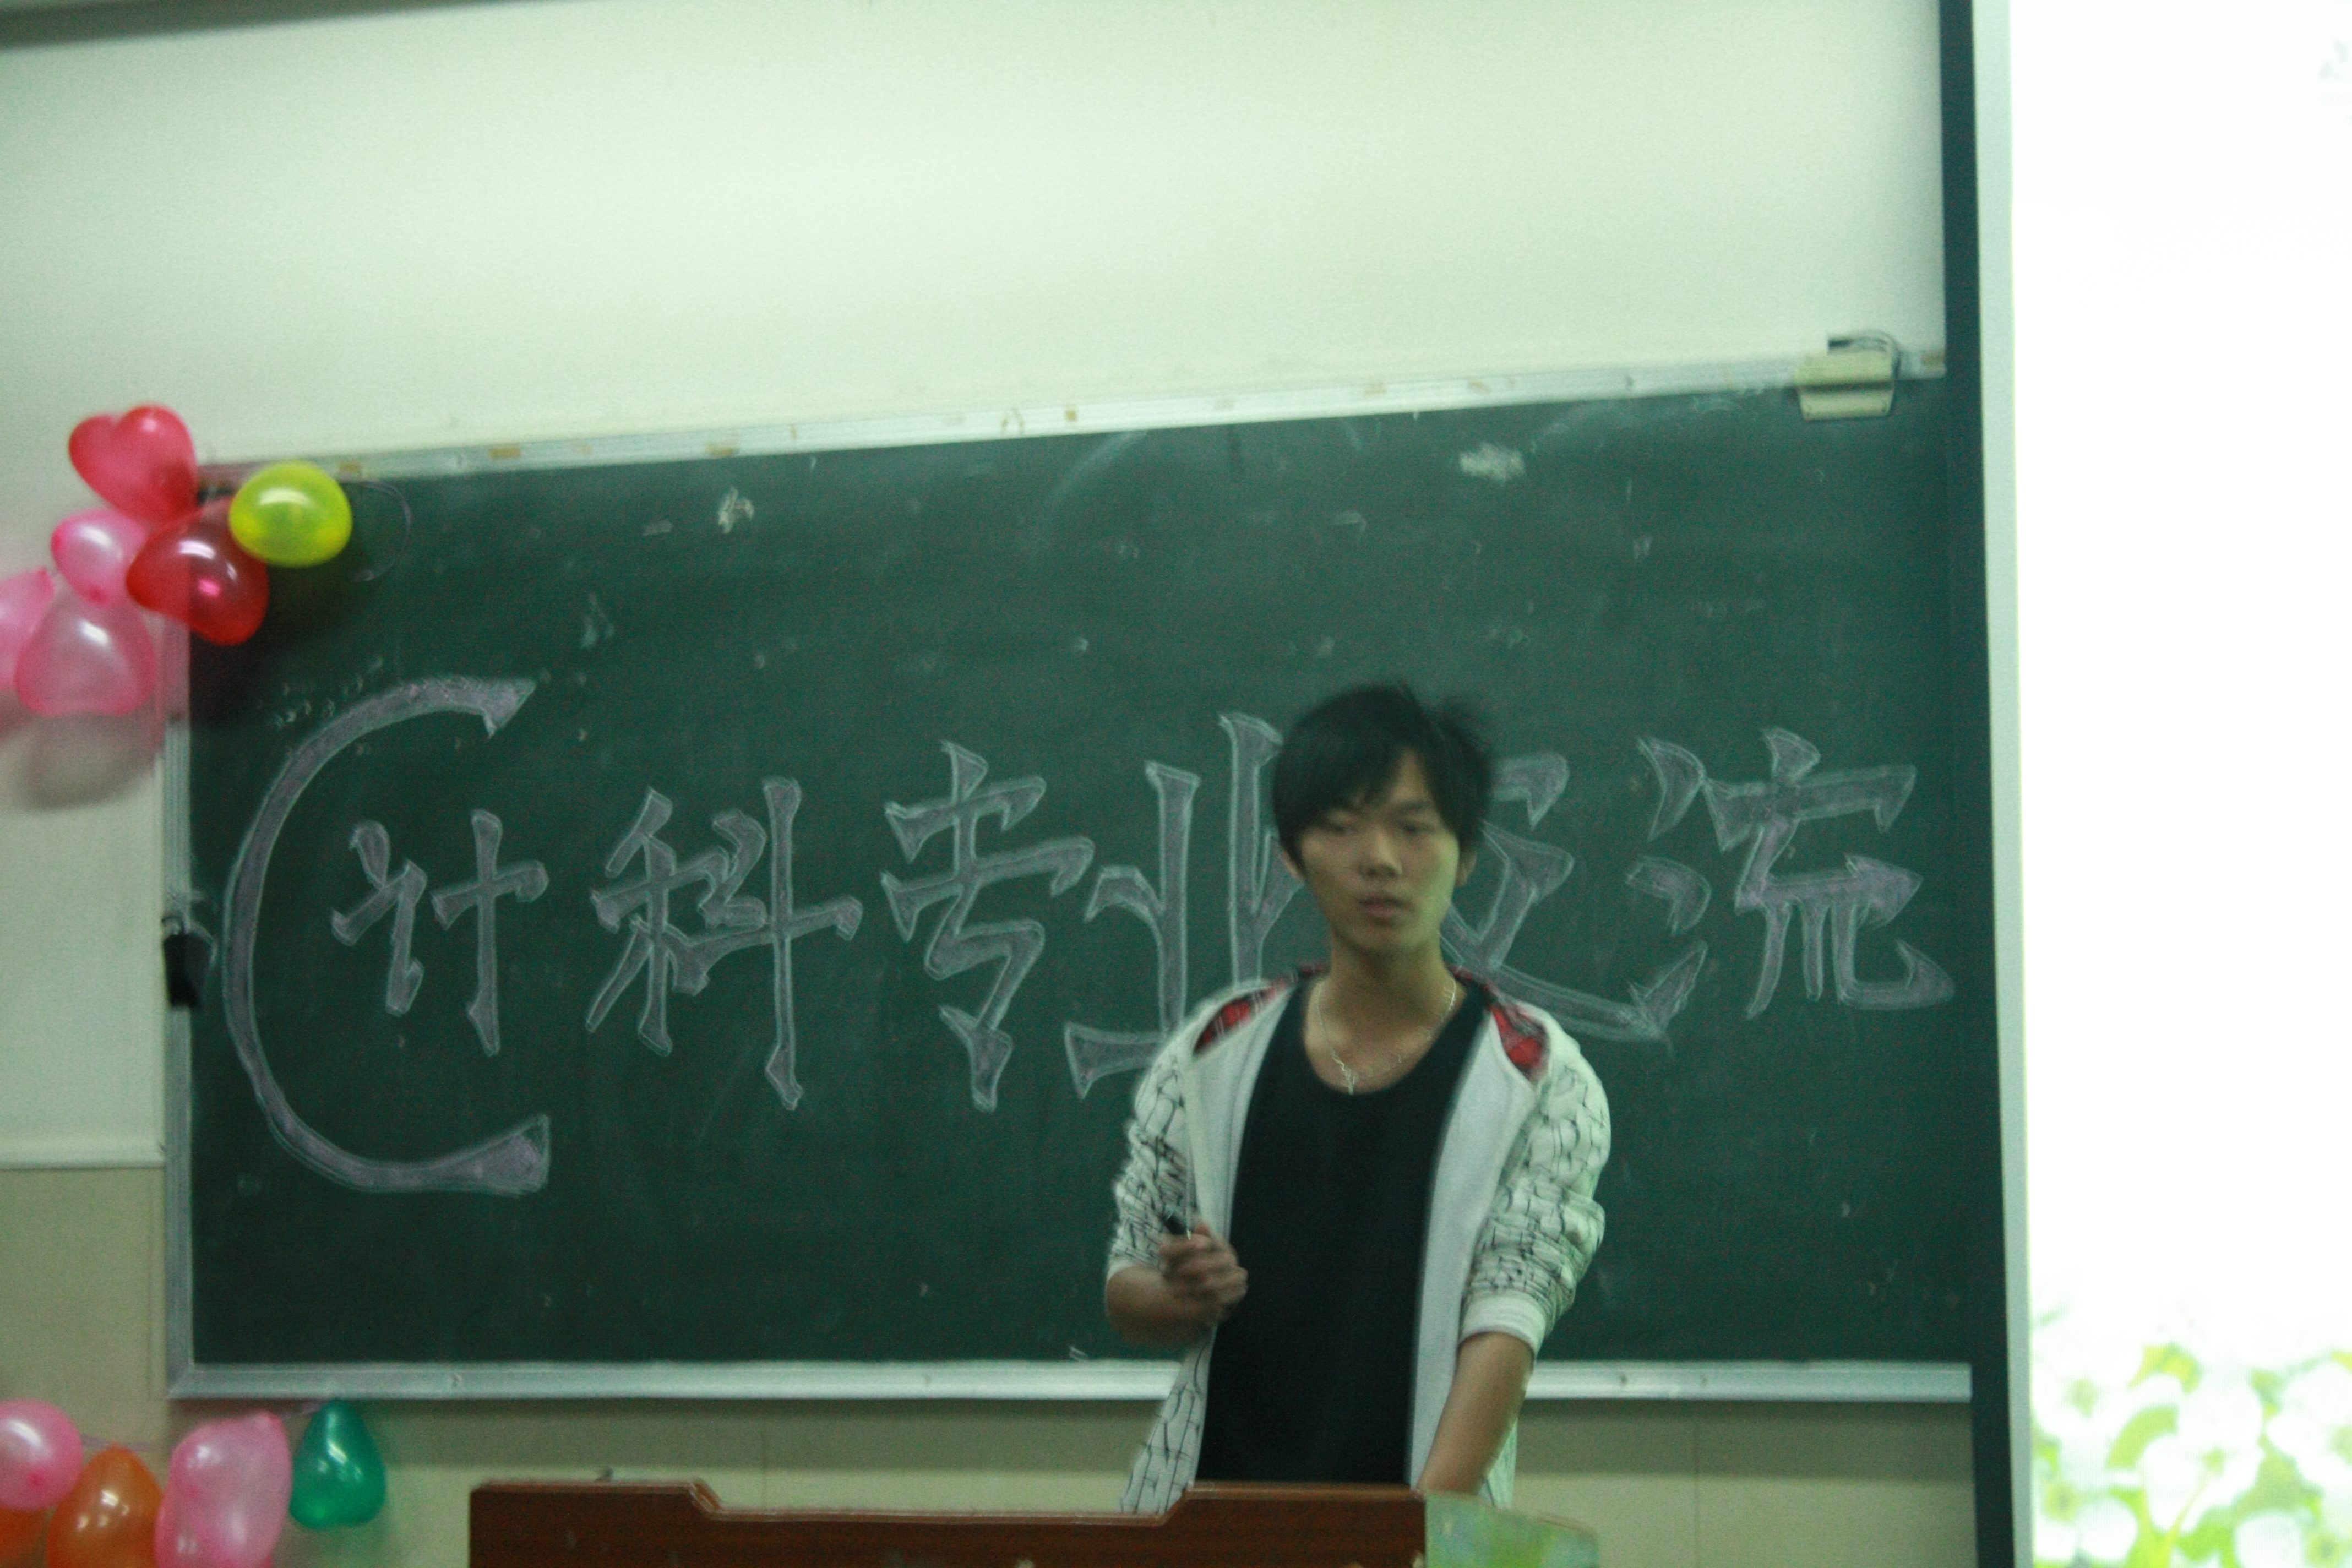 C计科专业交流